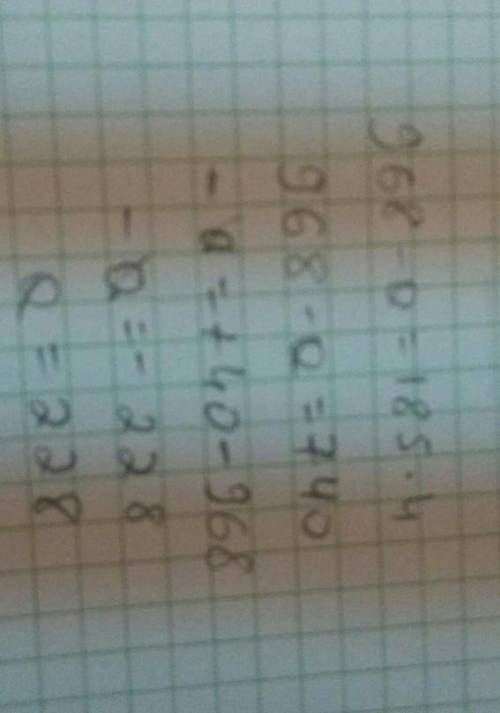 968 - a = 185 · 4
968 - a = 740
- a = 740 - 968
- a = - 228
a = 228